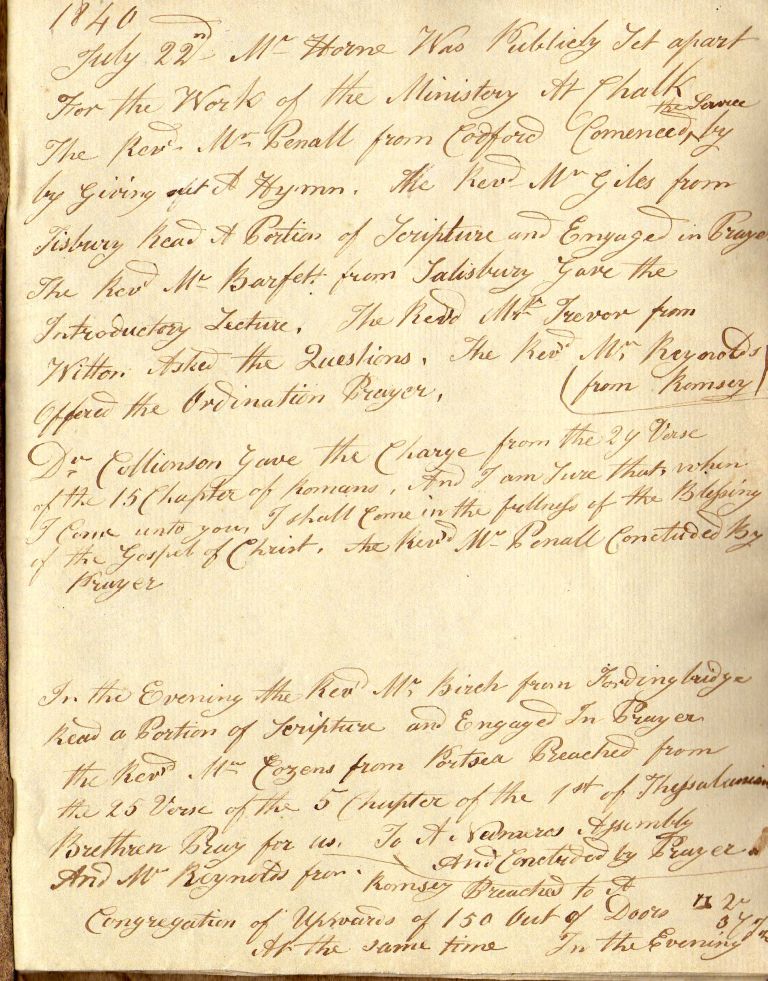 1840
July 22nd Mr Horne Was Publicly Set apart
For the Work of the Ministery At Chalk
the Service
The Revd Mr Penall from Codford Comenced, by
by Giving out A Hymn. The Revd Mr Giles from
Tisbury Read A Portion of Scripture and Engaged in Prayer
The Revd Mr Barfett from Salisbury Gave the
Introductory Lecture. The Revd Mr Trevor from
Wilton Asked the Questions. The Revd Mr Reynolds
Offered the Ordination Prayer. (from Romsey)
Dr Collionson Gave the Charge from the 29 Verse
of the 15 Chapter of Romans. And I am Sure that, when
I Come unto you, I shall Come in the fullness of the Blessing
of the Gospel of Christ. The Revd Mr Penall Concluded By
Prayer
In the Evening the Revd Mr Birch from Fordingbridge
Read a Portion of Scripture and Engaged In Prayer
the Revd Mr Cozens from Portsea Preached from
the 25 Verse of the 5 Chapter of the 1st of Thessalonians
Brethren Pray for us. To A Assembly
And Concluded by Prayer
And Mr Reynolds from Romsey Preached to A
Congregation of Upwards of 150 Out of Doors
At the same time In the Evening